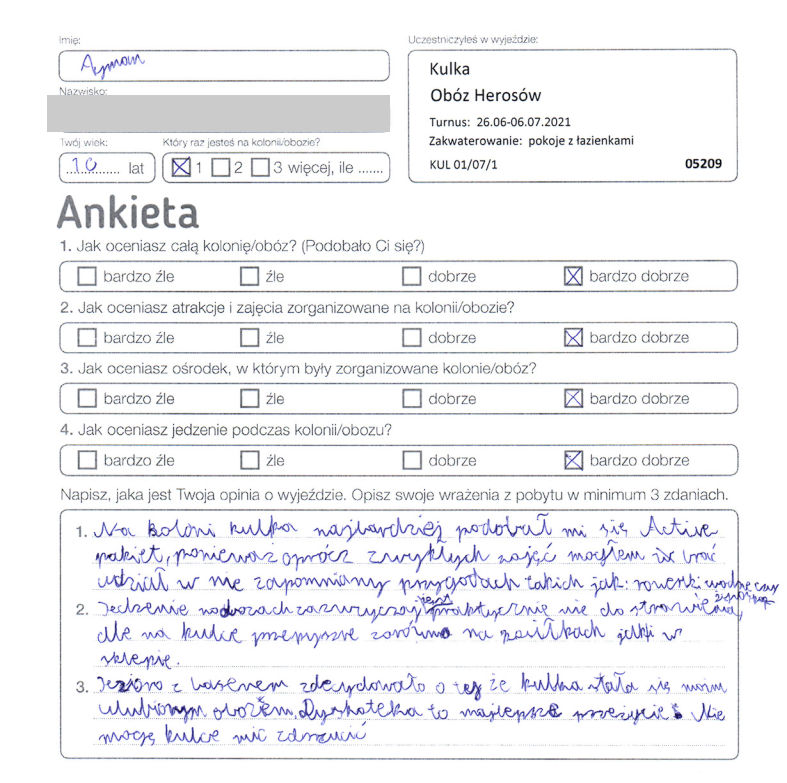 Imię:
Ayman
Uczestniczyłeś w wyjeździe:
Kulka
Obóz Herosów
Turnus: 26.06-06.07.2021
Zakwaterowanie: pokoje z łazienkami
KUL 01/07/1 05209
Nazwisko:
Twój wiek:
10 lat
Który raz jesteś na kolonii/obozie?
1 2 3 więcej, ile .......
Ankieta
1. Jak oceniasz całą kolonię/obóz? (Podobało Ci się?)
bardzo źle źle dobrze bardzo dobrze
2. Jak oceniasz atrakcje i zajęcia zorganizowane na kolonii/obozie?
bardzo źle źle dobrze bardzo dobrze
3. Jak oceniasz ośrodek, w którym były zorganizowane kolonie/obóz?
bardzo źle źle dobrze bardzo dobrze
4. Jak oceniasz jedzenie podczas kolonii/obozu?
bardzo źle źle dobrze bardzo dobrze
Napisz, jaka jest Twoja opinia o wyjeździe. Opisz swoje wrażenia z pobytu w minimum 3 zdaniach.
1. Na koloni kulka najbardziej podobał mi się Active
pakiet, ponieważ oprócz zwykłych zajęć mogłem brać
udział w nie zapomniany przygodach takich jak: rowerki wodne czy
2. Jedzenie na obozach zazwyczaj jest praktycznie nie do strawienia,
ale na kulce przepyszne zarówno na posiłkach jak i w
sklepie.
3. Jezioro z basenem zdecydowało o tej że kulka stała się moim
ulubionym obozem. Dyskoteka to najlepsze przeżycie. Nie
mogę kulce nic zarzucić